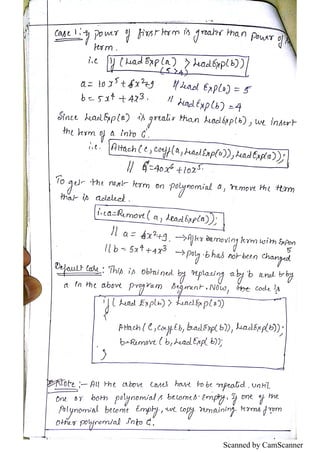 Case 1: If power of first term is greater than power of
term.
i.e if (LeadExp(a) > LeadExp(b))
(5>4)
a= 10x⁵+6x²+9 // Lead Exp(a) = 5
b= 5x⁴ + 4x³ // LeadExp(b) =4
Since LeadExp(a) is greater than LeadExp(b), we insert
the term of a into C.
i.e. Attach(C, coeff(a, LeadExp(a)), LeadExp(a));
To get the next term on polynomial a, remove the term
that is added.
i.e a=Remove(a, LeadExp(a));
// a = 6x²+9. → After removing term with expon 5
// b = 5x⁴+4x³ → poly.b has not been changed
Default case: This is obtained by replacing a by b and b by
a in the above program segment. Now, the code is
if (Lead Exp(b) > LeadExp(a))
{
Attach (C, coeff(b, LeadExp(b)), LeadExp(b));
b=Remove (b, LeadExp(b));
}
Note :- All the above cases have to be repeated until
one or both polynomials becomes empty. If one of the
Polynomial become Empty, we copy remaining terms from
other polynomial into C.
Scanned by CamScanner